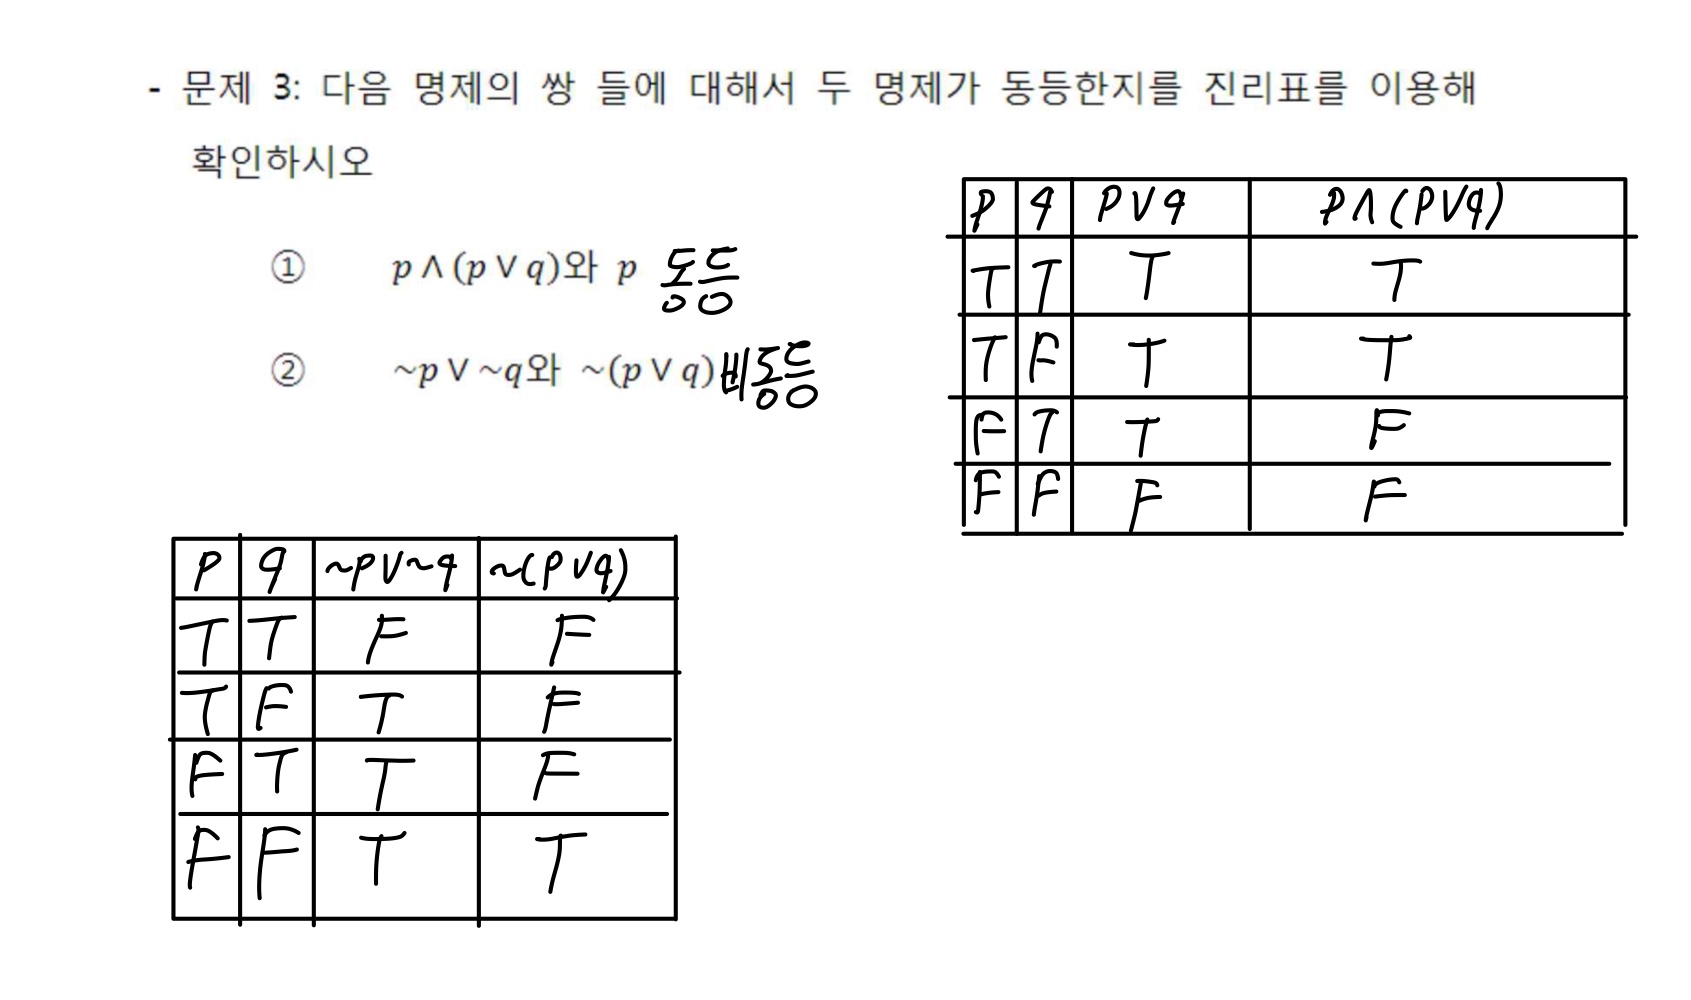 - 문제 3: 다음 명제의 쌍 들에 대해서 두 명제가 동등한지를 진리표를 이용해
확인하시오
① p ∧ (p ∨ q)와 p 동등
② ~p ∨ ~q와 ~(p ∨ q) 비동등
P q P∨q P∧(P∨q)
T T T T
T F T T
F T T F
F F F F
P q ~P∨~q ~(P∨q)
T T F F
T F T F
F T T F
F F T T